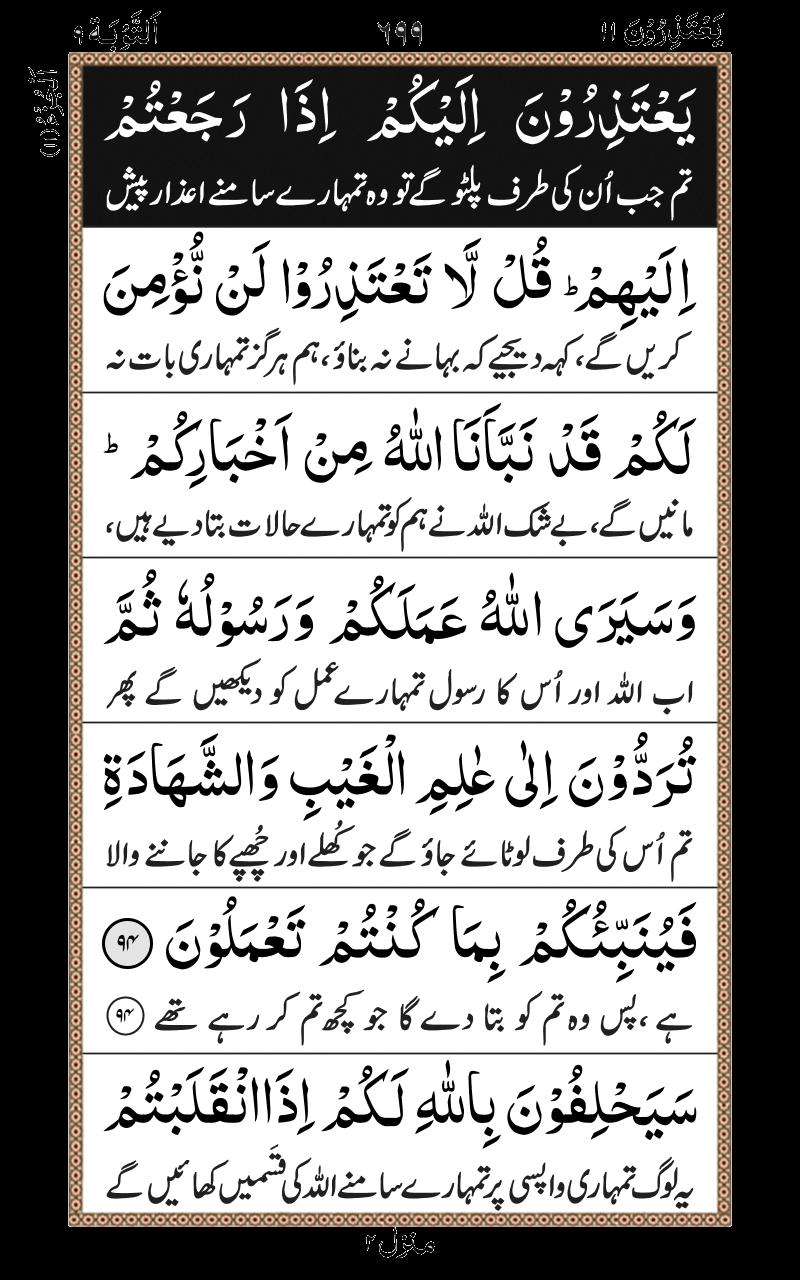 یَعْتَذِرُوْنَ ۱۱ ٦٩٩ اَلتَّوْبَة ۹
اَلْجُزْءُ (۱۱)
یَعْتَذِرُوْنَ اِلَیْكُمْ اِذَا رَجَعْتُمْ
تم جب اُن کی طرف پلٹو گے تو وہ تمہارے سامنے اعذار پیش
اِلَیْهِمْ ؕ قُلْ لَّا تَعْتَذِرُوْا لَنْ نُّؤْمِنَ
کریں گے، کہہ دیجیے کہ بہانے نہ بناؤ، ہم ہرگز تمہاری بات نہ
لَكُمْ قَدْ نَبَّاَنَا اللّٰهُ مِنْ اَخْبَارِكُمْ ؕ
مانیں گے، بےشک اللہ نے ہم کو تمہارے حالات بتا دیے ہیں،
وَسَیَرَی اللّٰهُ عَمَلَكُمْ وَرَسُوْلُهٗ ثُمَّ
اب اللہ اور اُس کا رسول تمہارے عمل کو دیکھیں گے پھر
تُرَدُّوْنَ اِلٰی عٰلِمِ الْغَیْبِ وَالشَّهَادَةِ
تم اُس کی طرف لوٹائے جاؤ گے جو کُھلے اور چُھپے کا جاننے والا
فَیُنَبِّئُكُمْ بِمَا كُنْتُمْ تَعْمَلُوْنَ ۹۴
ہے، پس وہ تم کو بتا دے گا جو کچھ تم کر رہے تھے ۹۴
سَیَحْلِفُوْنَ بِاللّٰهِ لَكُمْ اِذَا انْقَلَبْتُمْ
یہ لوگ تمہاری واپسی پر تمہارے سامنے اللہ کی قَسَمیں کھائیں گے
منزل ۲